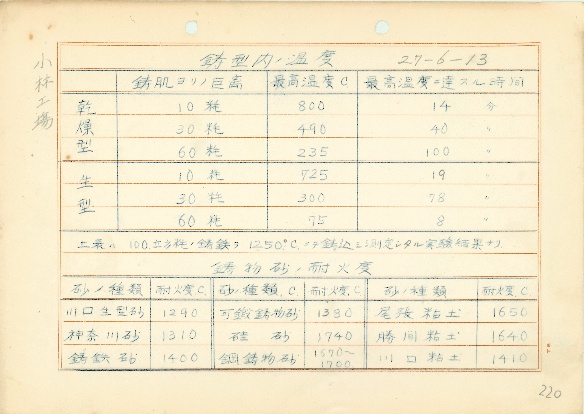 小林工場
鋳型内ノ温度 27-6-13
鋳肌ヨリノ巨离 最高温度C 最高温度ニ達スル時間
乾燥型 10粍 800 14 分
30粍 490 40 〃
60粍 235 100 〃
生型 10粍 725 19 〃
30粍 300 78 〃
60粍 75 8 〃
上表ハ 100立方粍ノ鋳鉄ヲ 1250°C ニテ鋳込ミ測定シタル実験結果ナリ
鋳物砂ノ耐火度
砂ノ種類 耐火度C 砂ノ種類 C 耐火度C 砂ノ種類 耐火度C
川口生型砂 1290 可鍛鋳物砂 1380 尾張粘土 1650
神奈川砂 1310 硅砂 1740 勝間粘土 1640
鋳鉄砂 1400 鋼鋳物砂 1570～1700 川口粘土 1410
220